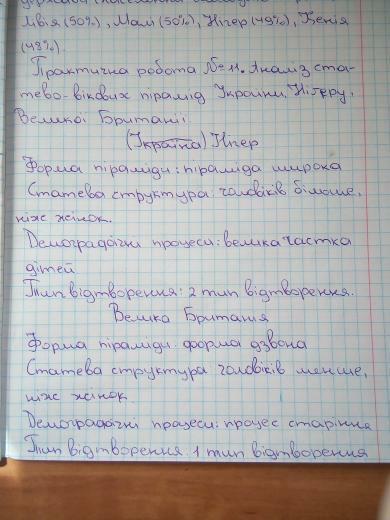 Лівія (50%), Малі (50%), Нігер (49%), Кенія
(48%).
Практична робота №11. Аналіз ста-
тево-вікових пірамід України, Нігеру,
Великої Британії
(Україна) Нігер
Форма піраміди: піраміда широка
Статева структура: чоловіків більше,
ніж жінок.
Демографічні процеси: велика частка
дітей
Тип відтворення: 2 тип відтворення.
Велика Британія
Форма піраміди: форма дзвона
Статева структура: чоловіків менше,
ніж жінок.
Демографічні процеси: процес старіння
Тип відтворення: 1 тип відтворення